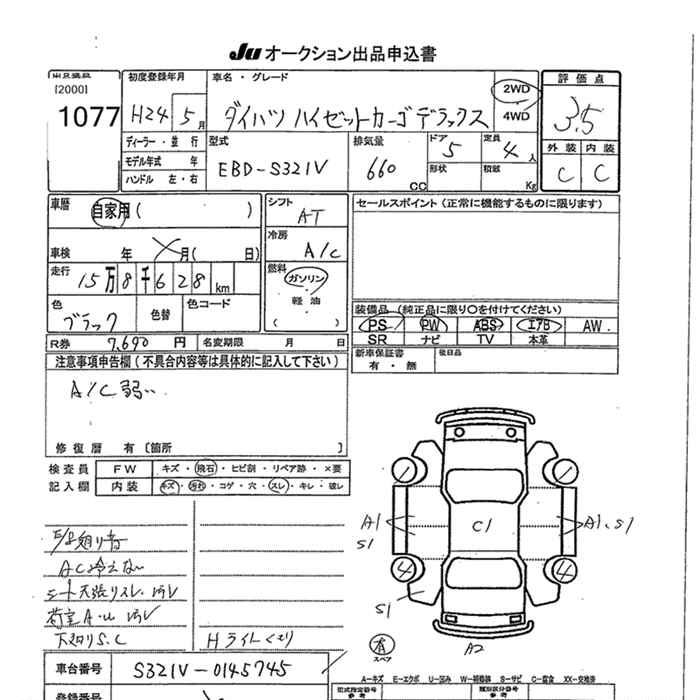 Ju オークション出品申込書
[2000]
1077
初度登録年月
H24 5月
車名・グレード
ダイハツ ハイゼットカーゴ デラックス
2WD
4WD
評価点
3.5
外装 内装
C C
ディーラー・並行
モデル年式 年
ハンドル 左・右
型式
EBD-S321V
排気量
660 CC
ドア
5
形状
定員
4人
積載
Kg
車歴
自家用( )
車検 年 月( 日)
走行
15万8千628km
色
ブラック
色替
色コード
シフト
AT
冷房
A/C
燃料
ガソリン
軽油
( )
セールスポイント(正常に機能するものに限ります)
装備品(純正品に限り○を付けてください)
PS PW ABS エアB AW
SR ナビ TV 本革
R券 7,690円 名変期限 月 日
新車保証書
有・無
後日品
注意事項申告欄(不具合内容等は具体的に記入して下さい)
A/C 弱い
修復歴 有〔箇所 〕
検査員
記入欄
FW キズ・飛石・ヒビ割・リペア跡・×要
内装 キズ・汚れ・コゲ・穴・スレ・キレ・破レ
AC冷えない
Hライトくもり
C1
A1
S1
A1、S1
4
4
S1
A2
有
スペア
車台番号 S321V-0145745
A=キズ E=エクボ U=凹み W=補修跡 S=サビ C=腐食 XX=交換済
登録番号